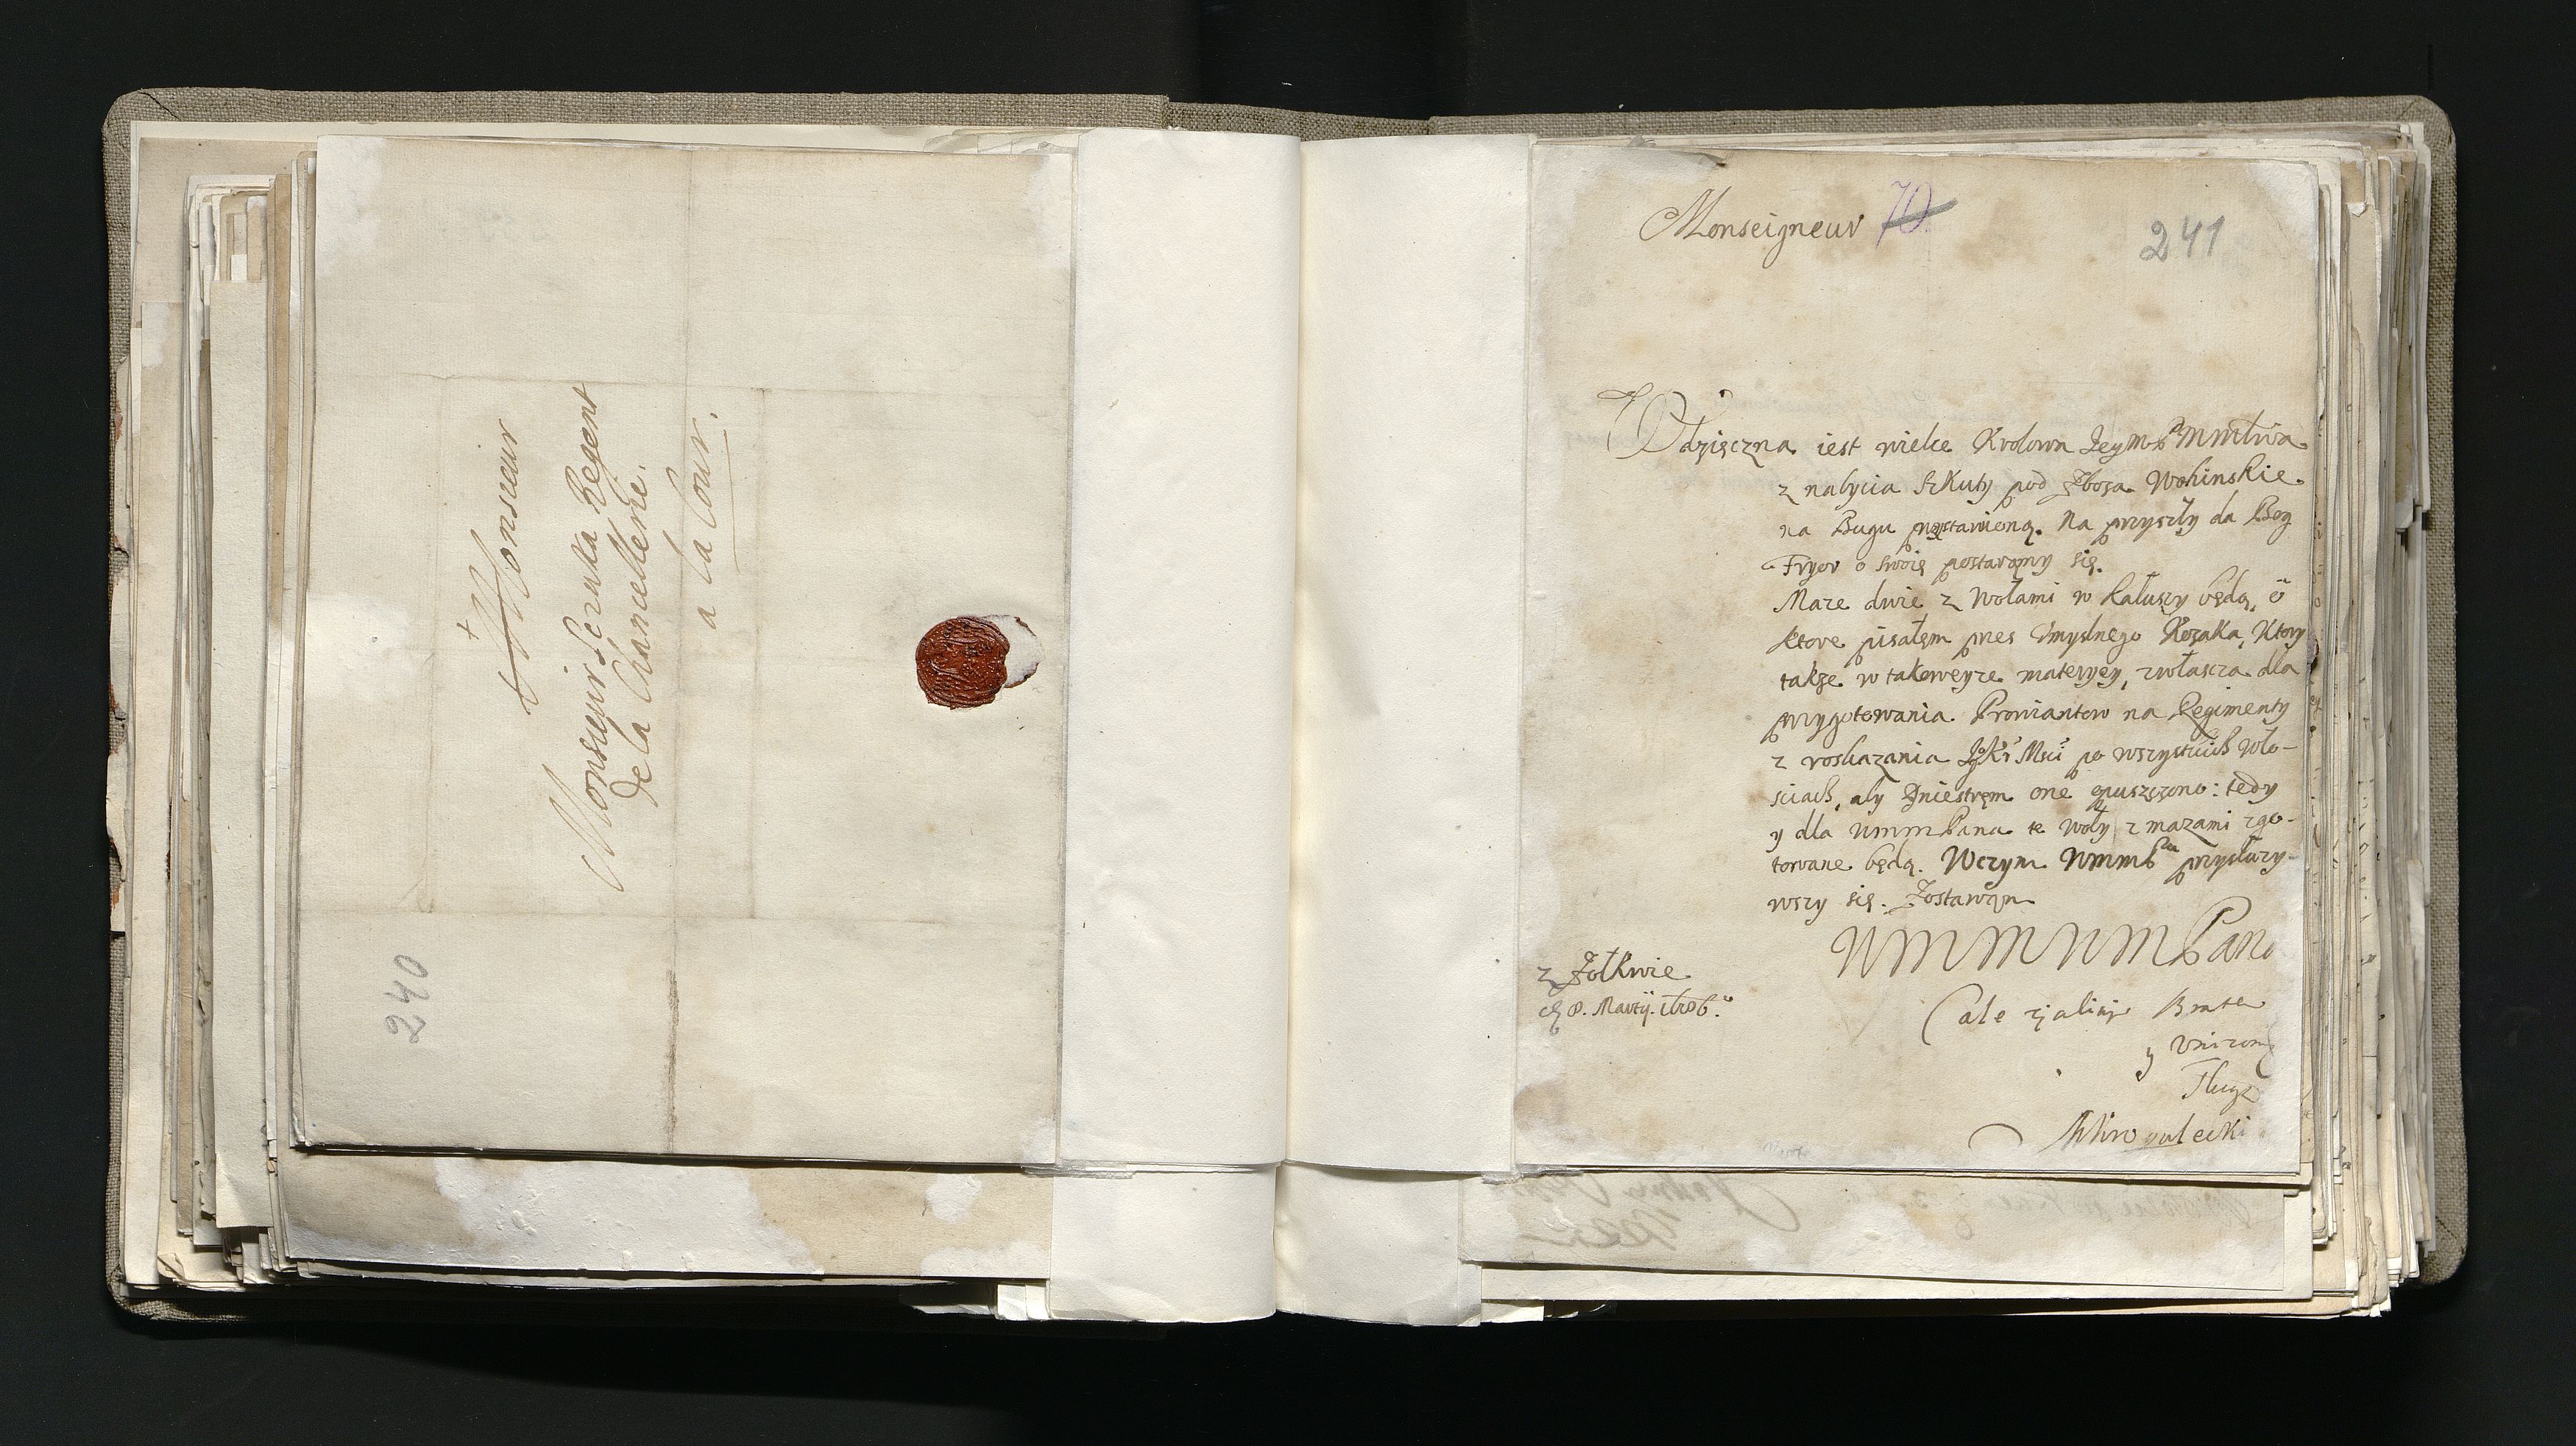 Monsieur
Monsieur Szczuka Regent
de la Chancellerie.
a la Cour.
240
Monseigneur 70
241
Wdzięczna iest wielce Krolowa Jeym
z nabycia szkuty pod zboża Wohinskie
na Bugu postawioną. Na przyszły da Bog
Fryor o swoię postaramy się.
Maze dwie z Wołami w Kałuszy będą, o
ktore pisałem przes Vmyslnego Kozaka, Ktory
także w takoweyze materyey, zwłascza dla
przygotowania Prowiantow na Regimenty
z roskazania JKr Msci po wszystkich wło-
sciach, aby Dniestrem one spuszczono: tedy
y dla WMMPana te woły z mazami zgo-
towane będą. Wczym WMMPa przysłuzy-
wszy się. Zostawam
WMMWMPana
Cale życzliwy Brat
y Vnizony
Sługa
z Zołkwie
8. Martij.